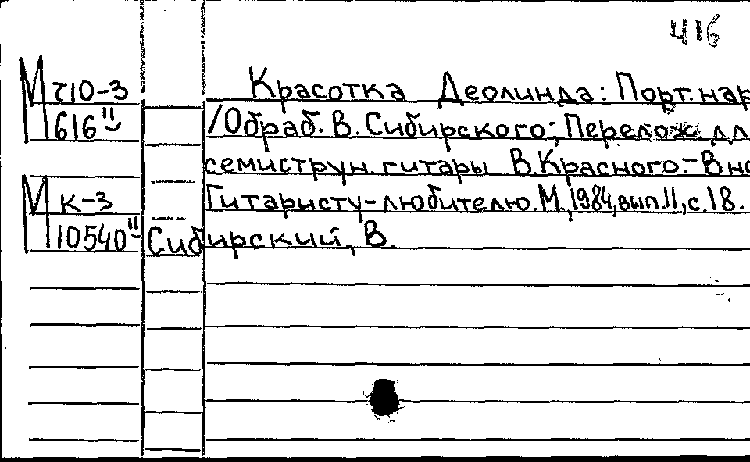 416
М т10-3
Красотка Деолинда: Порт. нар
616"
/Обраб. В. Сибирского; Перелож. дл
семиструн. гитары В.Красного.-В кн
М к-3
Гитаристу-любителю. М., 1984, вып.11, с.18.
10540"
Сибирский, В.